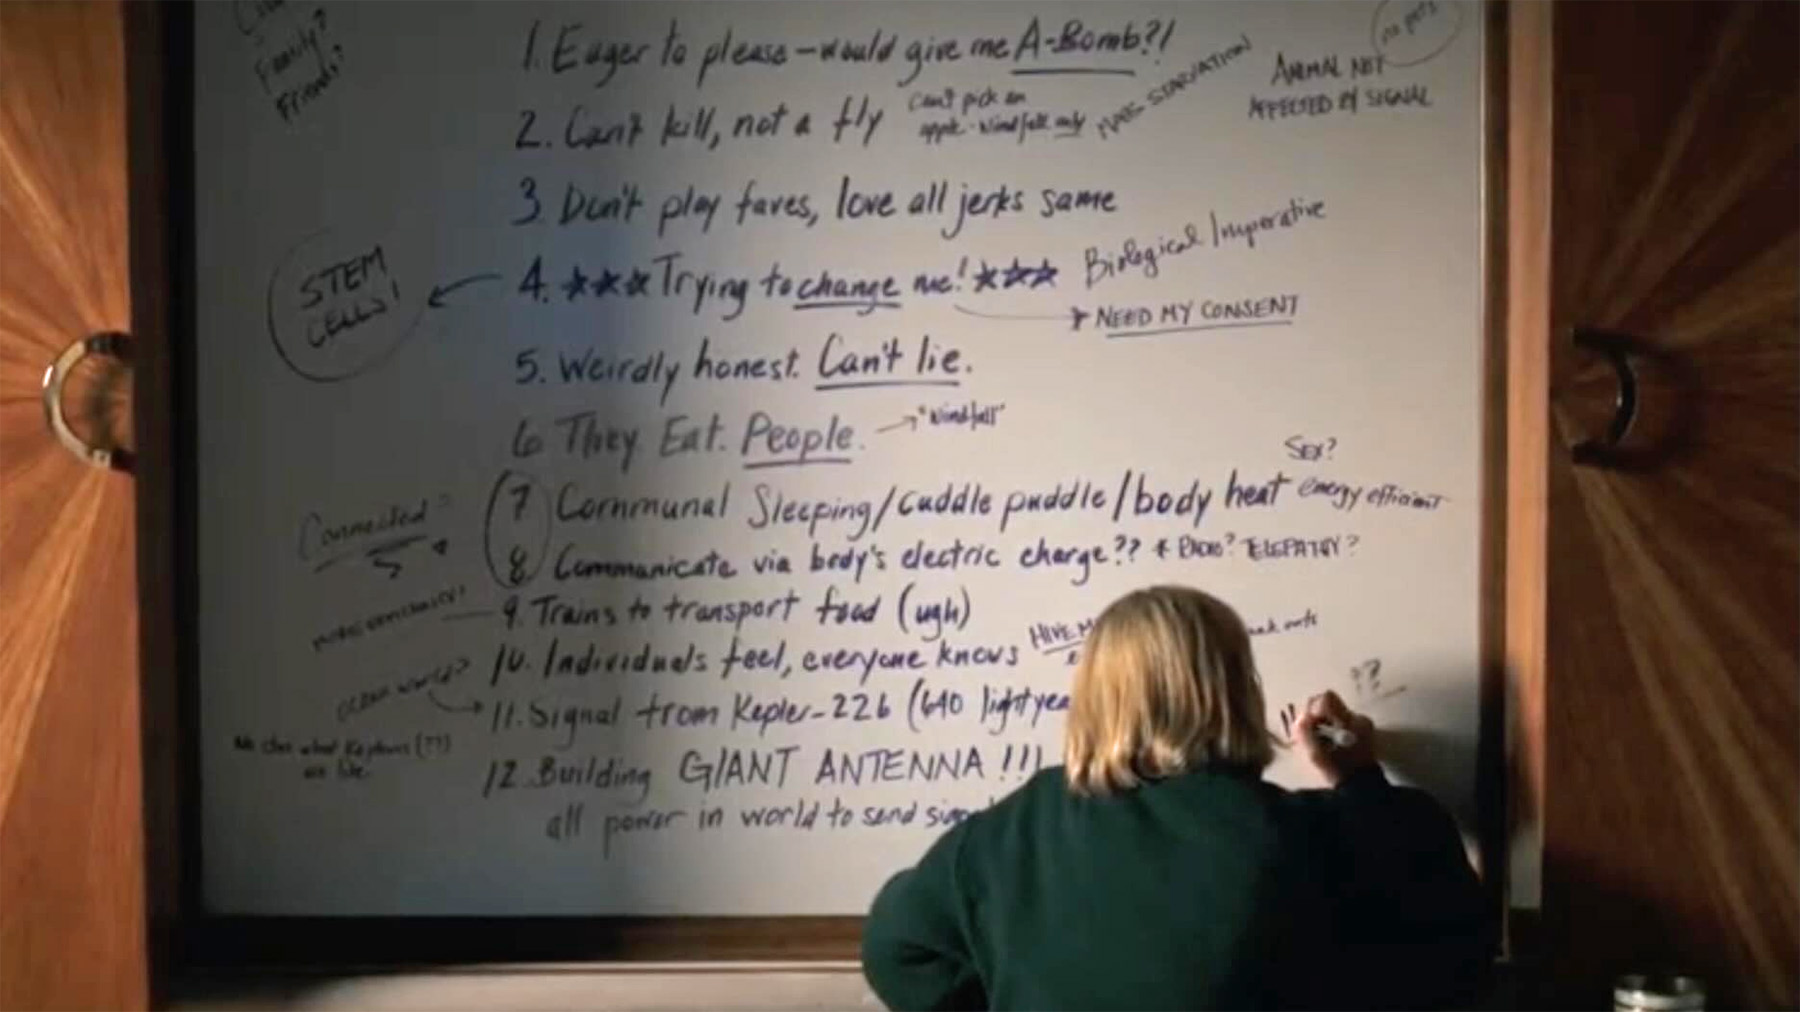 Family?
Friends?
1. Eager to please - would give me A-Bomb?!
no pets
ANIMAL NOT
AFFECTED BY SIGNAL
2. Can't kill, not a fly
Can't pick an
apple - windfall only
MASS STARVATION
3 Don't play faves, love all jerks same
STEM
CELLS!
4. ★★★ Trying to change me! ★★★
Biological Imperative
NEED MY CONSENT
5. Weirdly honest. Can't lie.
6 They Eat. People.
"Windfall"
Connected?
7 Communal Sleeping/cuddle puddle/body heat
Sex?
energy efficient
8. Communicate via body's electric charge??
RADIO? TELEPATHY?
9. Trains to transport food (ugh)
10. Individuals feel, everyone knows
HIVE
OCEAN WORLD?
11. Signal from Kepler-22b (640 lightyea
??
No clue what Keplerians (??)
are like
12. Building GIANT ANTENNA!!!
all power in world to send